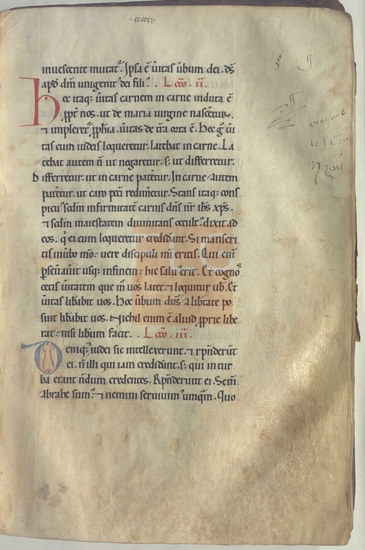 inuescente mutat᷑. Ipsa ē uitas ubum dei. ds̄
apđ dm̄ unigenit᷑ dei fili᷑. Lcō. ii.
Hec itaq; ūitas carnem in carne induta ē
ꝓpt̄ nos. ut de maria uirgine nascetur.
⁊ impleret᷑ ꝓphia. ūitas de t̄ra orta ē. Hec ḡ ūi
tas cum iudeis loqueretur. latebat in carne. La
tebat autem n̄ ut negaretur. s; ut differretur.
Differretur. ut in carne pateret᷑. In carne autem
pateret᷑. ut caro peccī redimeret᷑. Stans itaq; cons
picu᷑ sc̄dm infirmitatē carnis dn̄s nr̄ ih̄s xp̄s.
⁊ sc̄dm maiestatem diuinitatis occult᷑. dixit ad
eos. qi ei cum loqueretur crediderūt. Si manseri
tis in ubo mō. uere discipuli mei eritis. Qui eni᷑
ꝑseuauit usq; in finem. hic saluus erit. Et cogno
cetis ūitatem que modo uos latet. ⁊ loquitur uobis. Et
ūitas libabit uos. Hoc ūbum dn̄s a libtate po
suit libabit uos. Nichil enim ē aliud ꝓprie libe
rat. nisi libum facit. Lcō. iii.
Deniq; iudei sic intellexerunt. ⁊ rn̄derūt
ei. n̄ illi qui iam crediderāt. s; qui in tur
ba erant nōdum credentes. Rn̄derunt ei. Sem̄
abrahe sum᷑. ⁊ nemini seruiuim᷑ umq̄m. Quo